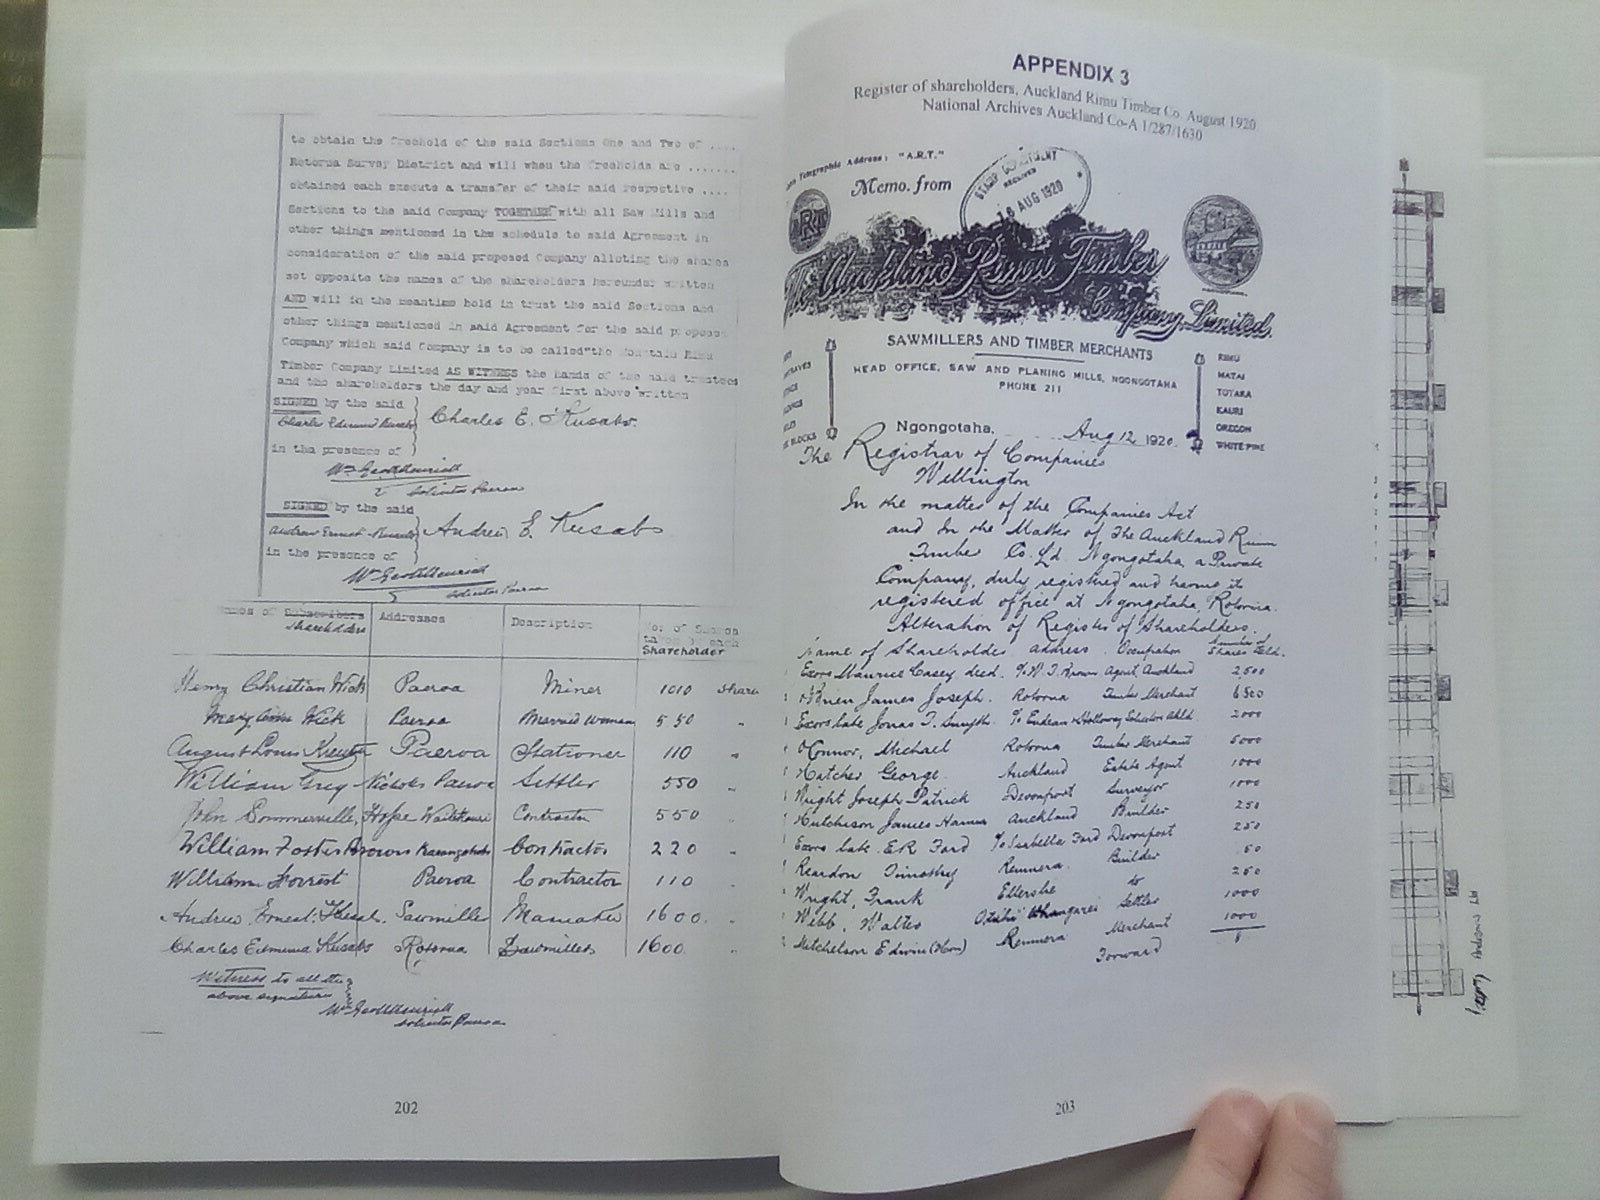 to obtain the freehold of the said Sections One and Two of ....
Rotorua Survey District and will when the freeholds are .......
obtained each execute a transfer of their said respective ....
Sections to the said Company TOGETHER with all Saw Mills and
other things mentioned in the schedule to said Agreement in
consideration of the said proposed Company alloting the shares
set opposite the names of the shareholders hereunder written
AND will in the meantime hold in trust the said Sections and
other things mentioned in said Agreement for the said proposed
Company which said Company is to be called "the Mountain Rimu
Timber Company Limited AS WITNESS the hands of the said trustees
and the shareholders the day and year first above written
SIGNED by the said
Charles Edmund Kusabs
Charles E. Kusabs.
in the presence of
Solicitor Paeroa
SIGNED by the said
Andrew Ernest Kusabs
Andrew E. Kusabs
in the presence of
Solicitor Paeroa
Names of Subscribers Addresses Description No: of Shares
Shareholders taken by each
Shareholder
Henry Christian Wick Paeroa Miner 1010 Shares
Mary Ann Wick Paeroa Married Woman 550 "
August Louis Paeroa Stationer 110 "
William Grey Nicholls Paeroa Settler 550 "
John Sommerville, Hope Contractor 550 "
William Foster Browns Contractor 220 "
William Forrest Paeroa Contractor 110 "
Andrew Ernest Sawmiller Mamaku 1600. "
Charles Edmund Kusabs Rotorua Sawmiller 1600. "
Witness to all the
above signatures
Solicitor Paeroa
202
APPENDIX 3
Register of shareholders, Auckland Rimu Timber Co. August 1920
National Archives Auckland Co-A 1/287/1630
Telegraphic Address: "A.R.T."
Memo. from
STAMP DEPARTMENT
RECEIVED
16 AUG 1920
The Auckland Rimu Timber
Company, Limited.
SAWMILLERS AND TIMBER MERCHANTS
HEAD OFFICE, SAW AND PLANING MILLS, NGONGOTAHA
PHONE 211
RIMU
MATAI
TOTARA
KAURI
OREGON
WHITE PINE
BLOCKS
Ngongotaha, Aug 12, 1920.
The Registrar of Companies
Wellington
In the matter of the Companies Act
and In the Matter of The Auckland Rimu
Timber Co. Ld. Ngongotaha, a Private
Company, duly registered and having its
registered office at Ngongotaha, Rotorua.
Alteration of Register of Shareholders.
Name of Shareholder address Occupation Number of Shares held.
Exors Maurice Casey decd. c/o W. J. Brown Agent Auckland 2,500
O'Brien James Joseph. Rotorua Timber Merchant 6500
Exors late Jonas T. Smyth. c/o Endean & Holloway Solicitors Akld. 2000
O'Connor, Michael Rotorua Timber Merchant 5000
Hatcher George. Auckland Estate Agent 1000
Wright Joseph Patrick Devonport Surveyor 1000
Hutchison James Auckland Builder 250
Exors late E R Ford c/o Isabella Ford Devonport 250
Reardon Timothy Remuera Builder 50
Wright, Frank Ellerslie do 250
Webb, Walter Whangarei Settler 1000
Mitchelson Edwin (Hon) Remuera Merchant 1000
Forward
203